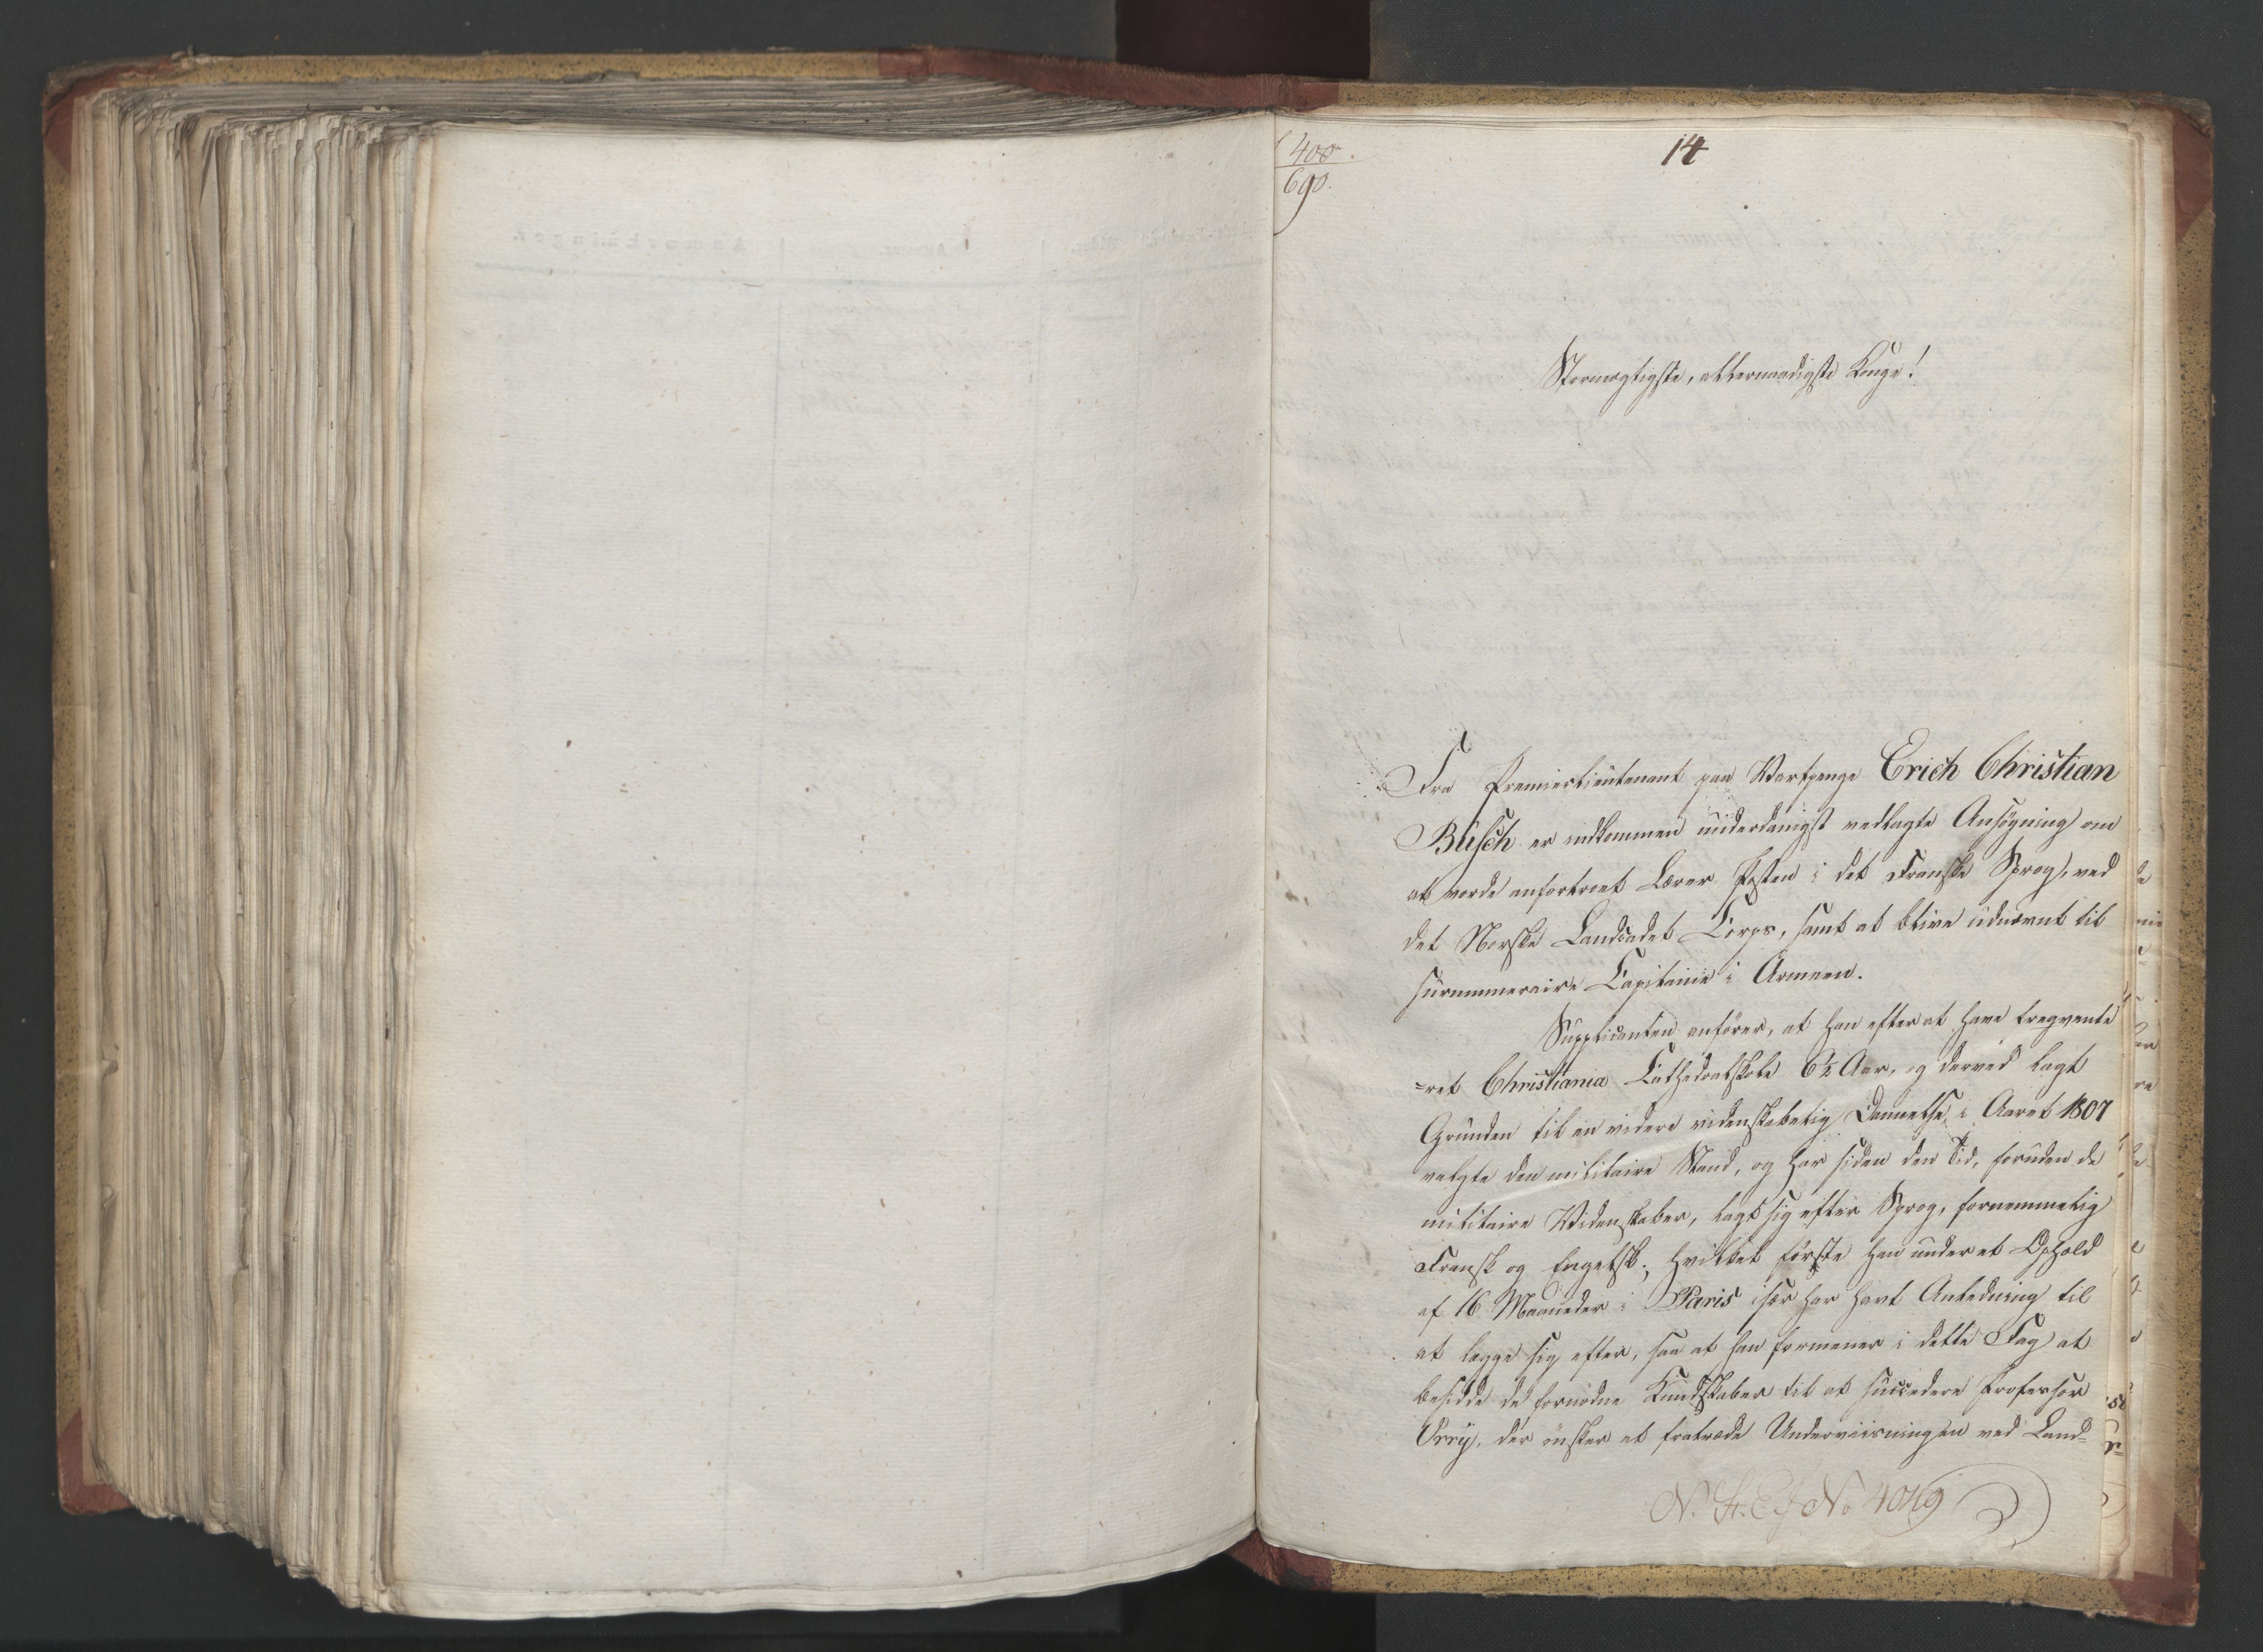 400.
690.
14
Stormægtigste, allernaadigste Konge!
Fra Premierlieutenant paa Vartpenge Erich Christian
Busch er indkommen underdanigst vedlagte Ansøgning om
at vorde anfortroet Lærer Posten i det Franske Sprog, ved
det Norske Landcadet Corps, samt at blive udnævnt til
surnummeraire Capitaine i Armeen.
Supplicanten anfører, at han efter at have freqvente
=ret Christiania Cathedralskole 6½ Aar, og derved lagt
Grunden til en videre videnskabelig Dannelse, i Aaret 1807
valgte den militaire Stand, og har siden den Tid, foruden de
militaire Videnskaber, lagt sig efter Sprog, fornemmelig
Fransk og Engelsk; hvilket første han under et Ophold
af 16 Maaneder i Paris især har havt Anledning til
at lægge sig efter, saa at han formener i dette Fag at
besidde de fornødne Kundskaber til at succedere Professor
Orry, der ønsker at fratræde Underviisningen ved Land-
N. St. Ex. No 4049